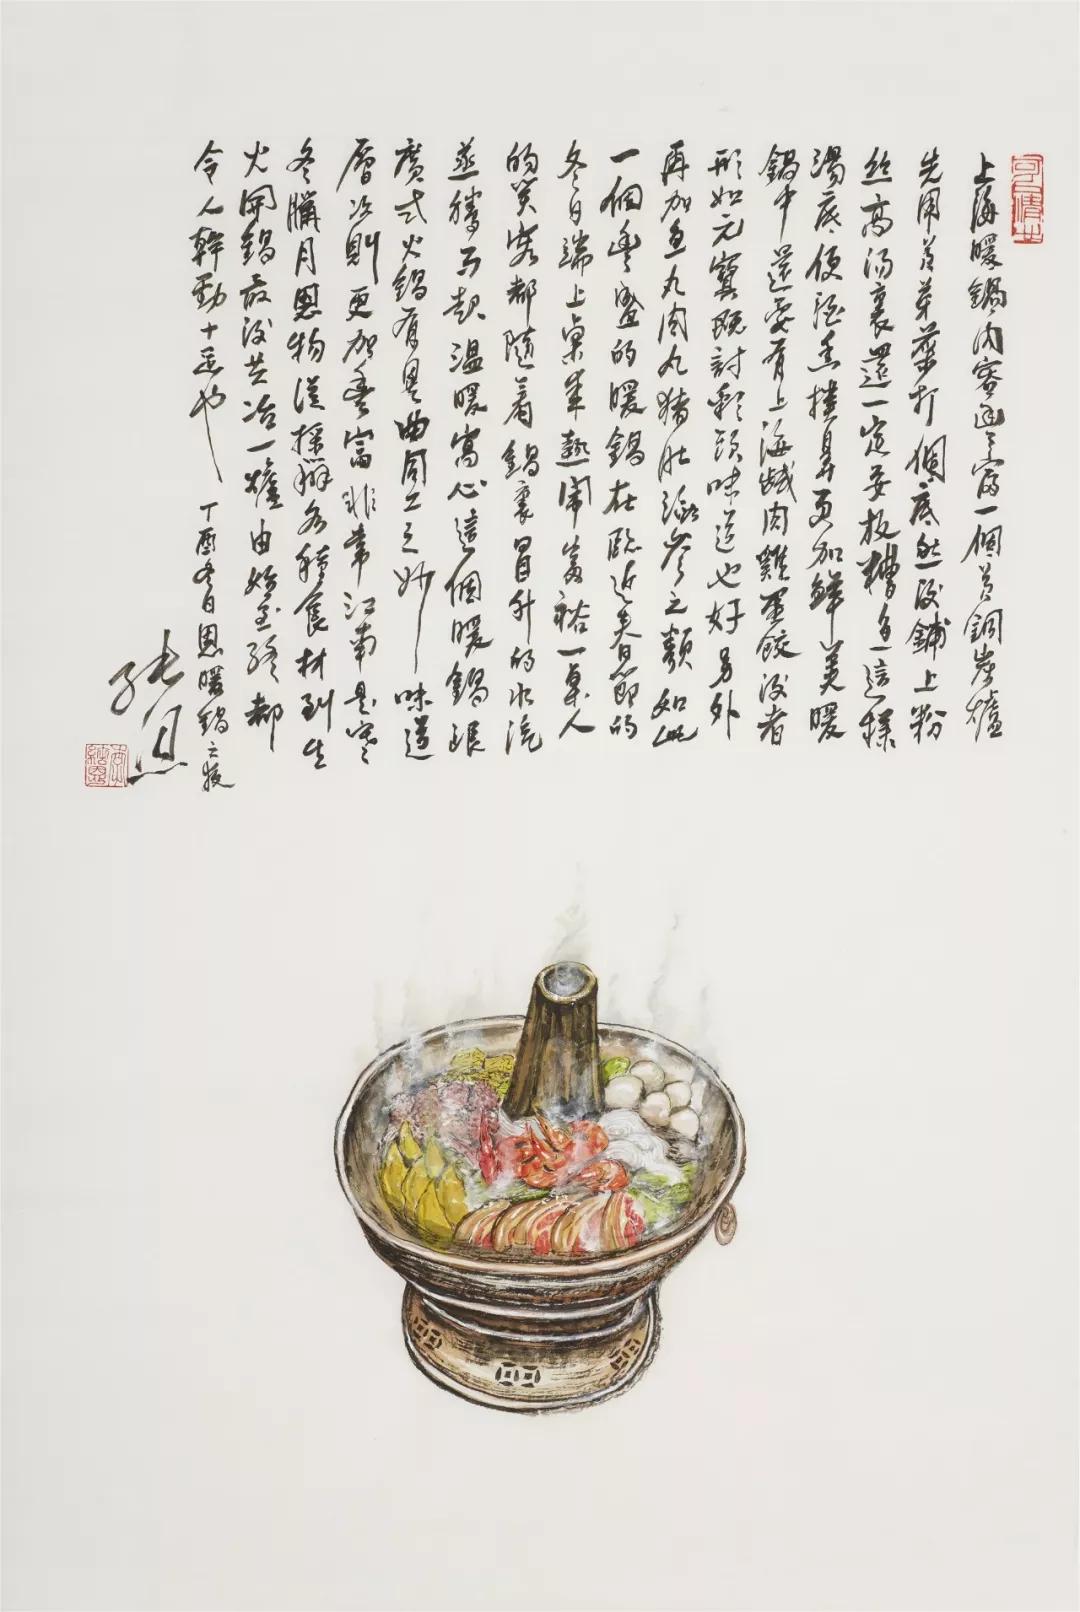 上海暖鍋內容豐富一個首銅炭爐
先用黃芽菜打個底然後鋪上粉
絲高湯裏還一定要放糟魚這樣
湯底便酒香撲鼻更加鮮美暖
鍋中還要有上海鹹肉雞蛋餃後者
形如元寶既討彩頭味道也好另外
再加魚丸肉丸豬肚海參之類如此
一個豐盛的暖鍋在臨近春節的
冬日端上桌來熱鬧富裕一桌人
的笑容都隨着鍋裏冒升的水汽
蒸騰而起溫暖窩心這個暖鍋跟
廣式火鍋有異曲同工之妙味道
層次則更加豐富非常江南是寒
冬臘月恩物從採辦各種食材到生
火開鍋最後共冶一爐由始至終都
令人幹勁十足也
丁酉冬日恩暖鍋之技
張恩